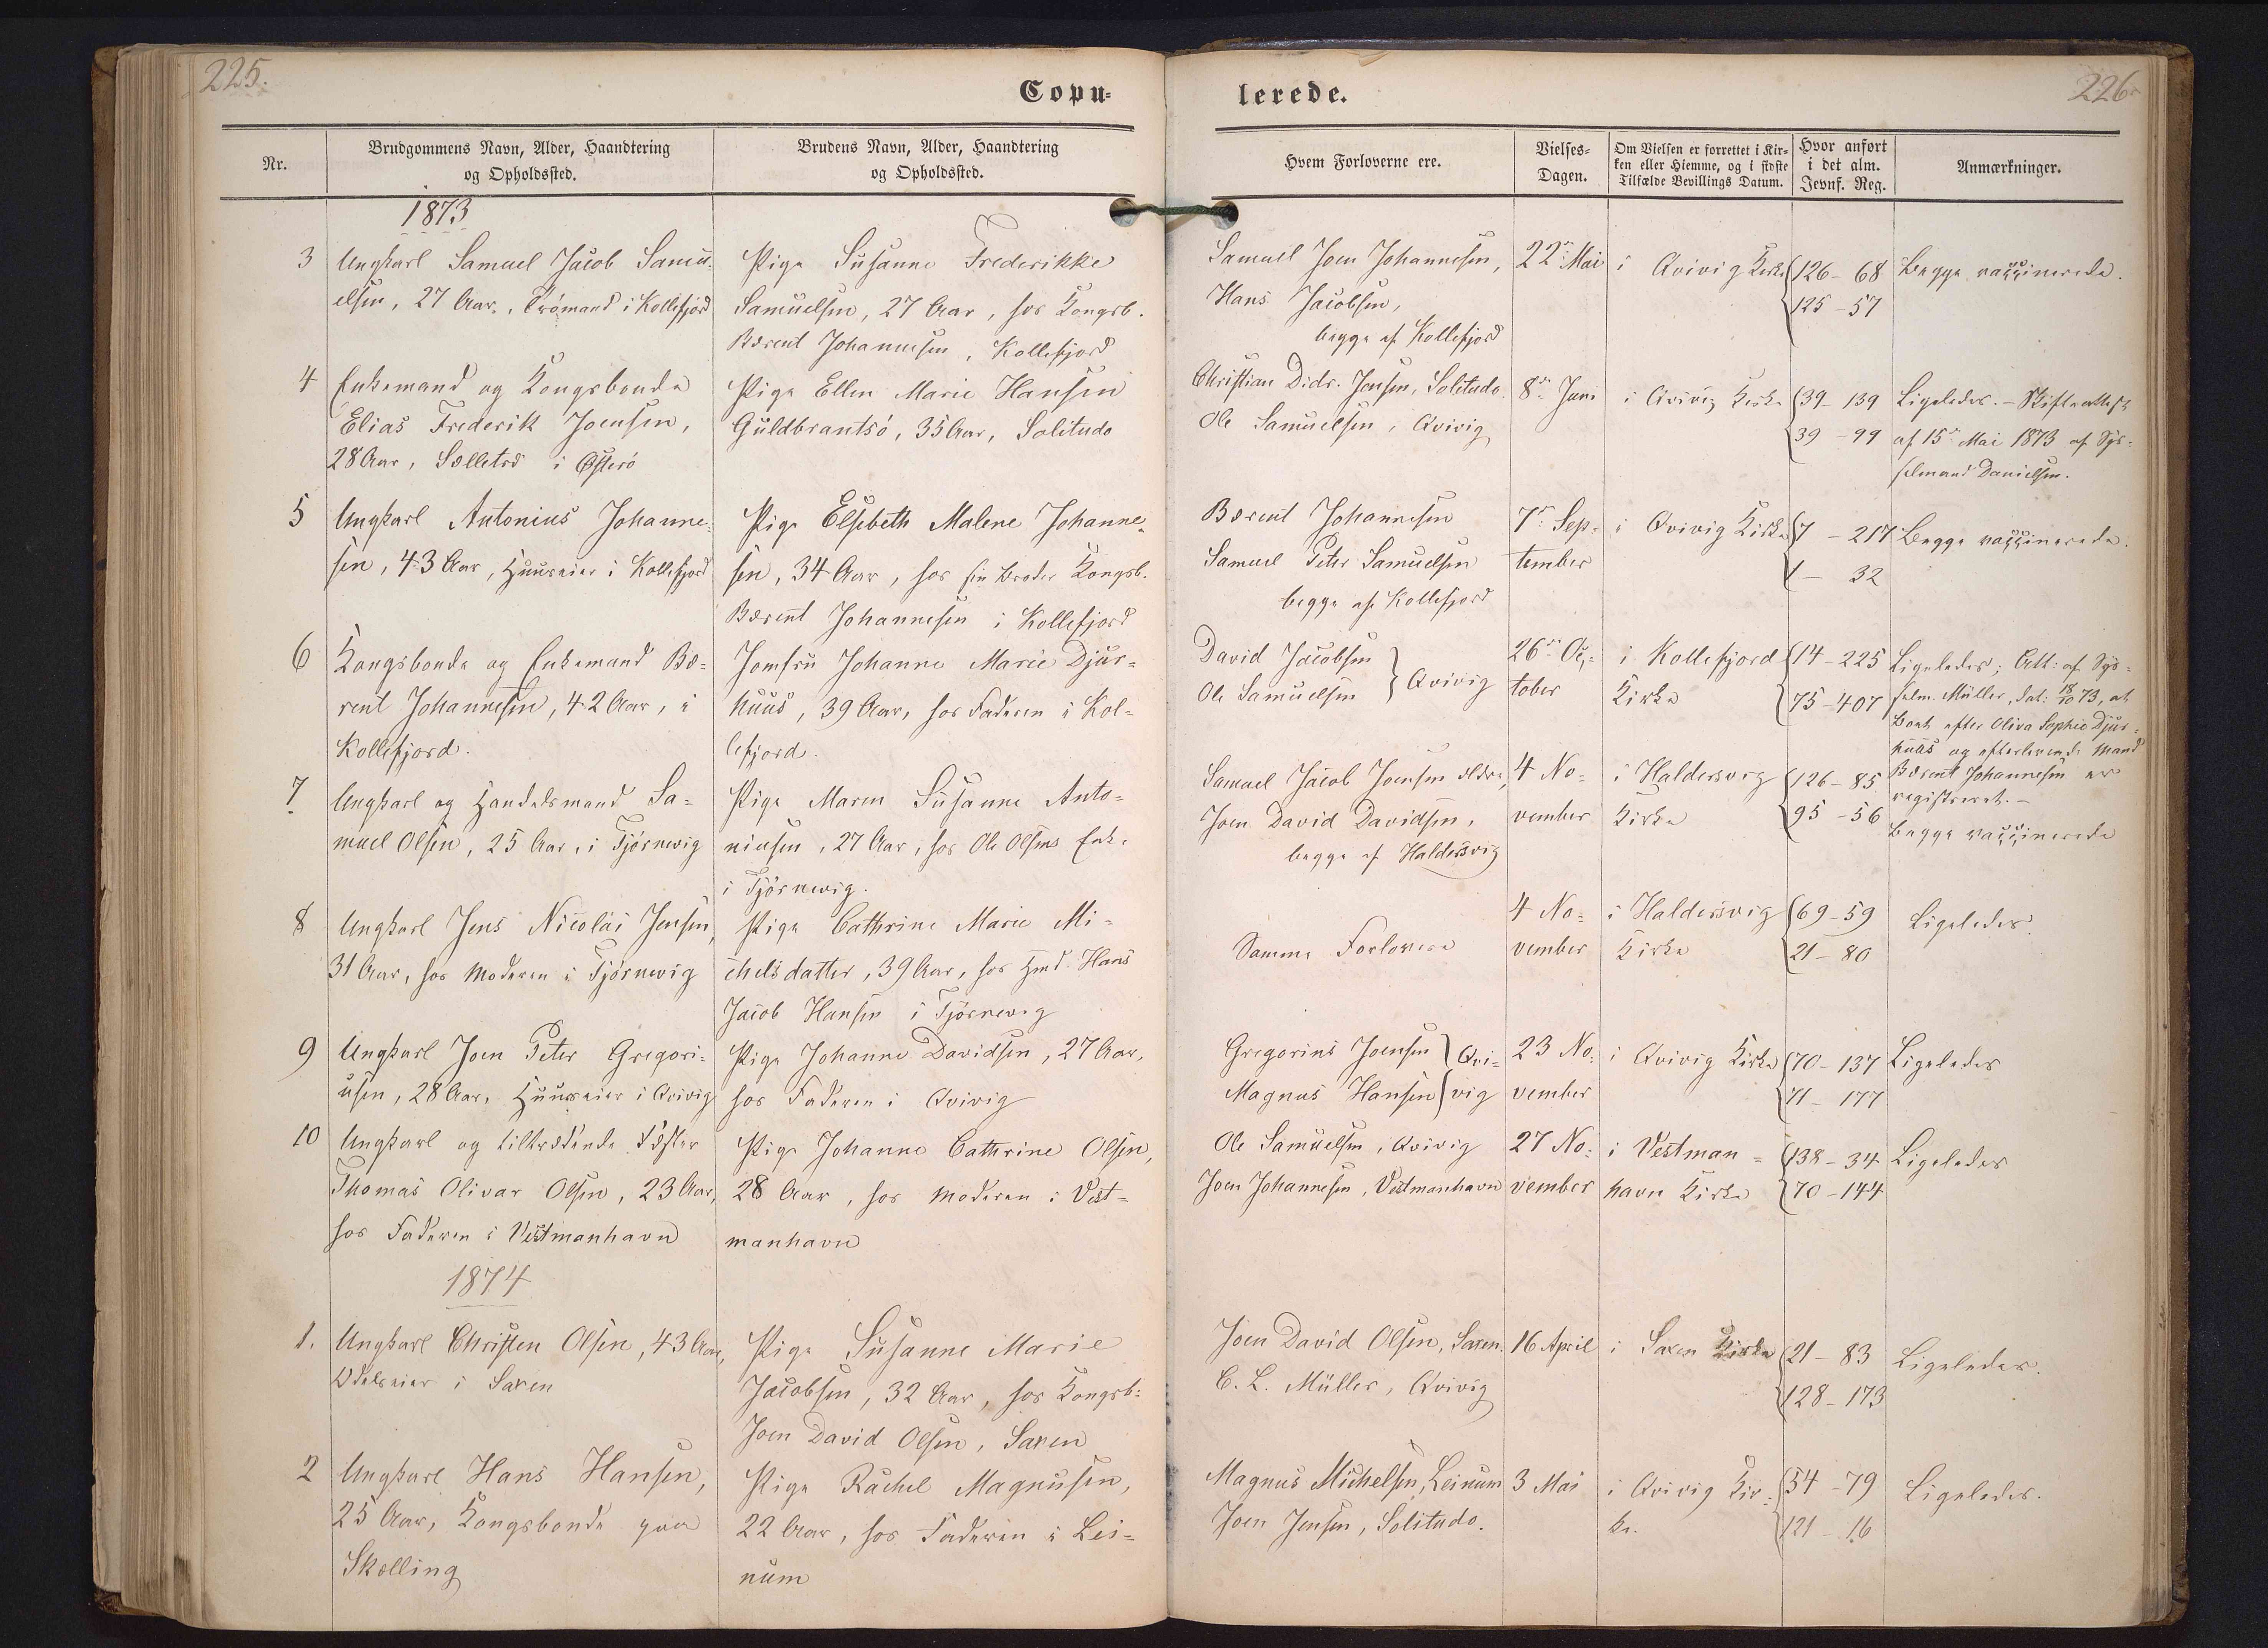 225.
226
Copu-
lerede.
Nr.
Brudgommens Navn, Alder, Haandtering
og Opholdssted.
Brudens Navn, Alder, Haandtering
og Opholdssted.
Hvem Forloverne ere.
Vielses-
Dagen.
Om Vielsen er forrettet i Kir-
ken eller Hiemme, og i sidste
Tilfælde Bevillings Datum.
Hvor anført
i det alm.
Jevnf. Reg.
Anmærkninger.
1873
3
Ungkarl Samuel Jacob Samu-
elsen, 27 Aar, Trømand i Kollefjord
Pige Susanne Frederikke
Samuelsen, 27 Aar, hos Kongsb.
Bærent Johannesen, Kollefjord
Samuel Joen Johannesen,
Hans Jacobsen,
begge af Kollefjord
22de Mai
i Qvivig Kirke
126-68
125-57
Begge vaccinerede.
4
Enkemand og Kongsbonde
Elias Frederik Joensen,
28 Aar, Sælletræ i Østerø
Pige Ellen Marie Hansen
Guldbrantsö, 35 Aar, Solitude
Christian Didr. Jensen, Solitude.
Ole Samuelsen, Qvivig
8de Juni
i Qvivig Kirke
39-139
39-99
Ligeledes. - Skifteattest
af 15de Mai 1873 af Sys-
selmand Danielsen.
5
Ungkarl Antonius Johanne-
sen, 43 Aar, Huuseier i Kollefjord
Pige Elsebeth Malene Johanne-
sen, 34 Aar, hos sin Broder Kongsb.
Bærent Johannesen i Kollefjord
Bærent Johannesen
Samuel Peter Samuelsen
begge af Kollefjord
7de Sep-
tember
i Qvivig Kirke
7 - 217
1 - 32
Begge vaccinerede.
6
Kongsbonde og Enkemand Bæ-
rent Johannesen, 42 Aar, i
Kollefjord.
Jomfru Johanne Marie Djur-
huus, 39 Aar, hos Faderen i Kol-
lefjord.
David Jacobsen
Ole Samuelsen } Qvivig
26de Oc-
tober
i Kollefjord
Kirke
14-225
75-407
Ligeledes; Att: af Sys-
selm. Müller, dat: 18/10 73, at
Boet efter Oliva Sophie Djur-
huus og efterlevende Mand
Bærent Johannesen er
registreret. -
7
Ungkarl og Handelsmand Sa-
muel Olsen, 25 Aar, i Tjørnevig
Pige Maren Susanne Anto-
niusen, 27 Aar, hos Ole Olsens Enke
i Tjørnevig.
Samuel Jacob Joensen ældre,
Joen David Davidsen,
begge af Haldersvig
4 No-
vember
i Haldersvig
Kirke
126-85
95-56
Begge vaccinerede
8
Ungkarl Jens Nicolai Jensen,
31 Aar, hos Moderen i Tjørnevig
Pige Cathrine Marie Mi-
chelsdatter, 39 Aar, hos Hmd. Hans
Jacob Hansen i Tjørnevig
Samme Forlovere
4 No-
vember
i Haldersvig
Kirke
69-59
21-80
Ligeledes.
9
Ungkarl Joen Peter Gregori-
usen, 28 Aar, Huuseier i Qvivig
Pige Johanne Davidsen, 27 Aar,
hos Faderen i Qvivig
Gregorius Joensen } Qvi-
Magnus Hansen } vig
23 No-
vember
i Qvivig Kirke
70-137
71-177
Ligeledes
10
Ungkarl og tiltrædende Fæster
Thomas Olivar Olsen, 23 Aar,
hos Faderen i Vestmanhavn
Pige Johanne Cathrine Olsen,
28 Aar, hos Moderen i Vest-
manhavn
Ole Samuelsen, Qvivig
Joen Johannesen, Vestmanhavn
27 No-
vember
i Vestman-
havn Kirke
138-34
70-144
Ligeledes
1874
1.
Ungkarl Christen Olsen, 43 Aar,
Odelseier i Saxen
Pige Susanne Marie
Jacobsen, 32 Aar, hos Kongsb:
Joen David Olsen, Saxen
Joen David Olsen, Saxen.
C. L. Müller, Qvivig
16 April
i Saxen Kirke
21-83
128-173
Ligeledes.
2
Ungkarl Hans Hansen,
25 Aar, Kongsbonde paa
Skælling
Pige Rachel Magnusen,
22 Aar, hos Faderen i Lei-
num
Magnus Michelsen, Leinum
Joen Jensen, Solitude.
3 Mai
i Qvivig Kir-
ke.
54-79
121-16
Ligeledes.